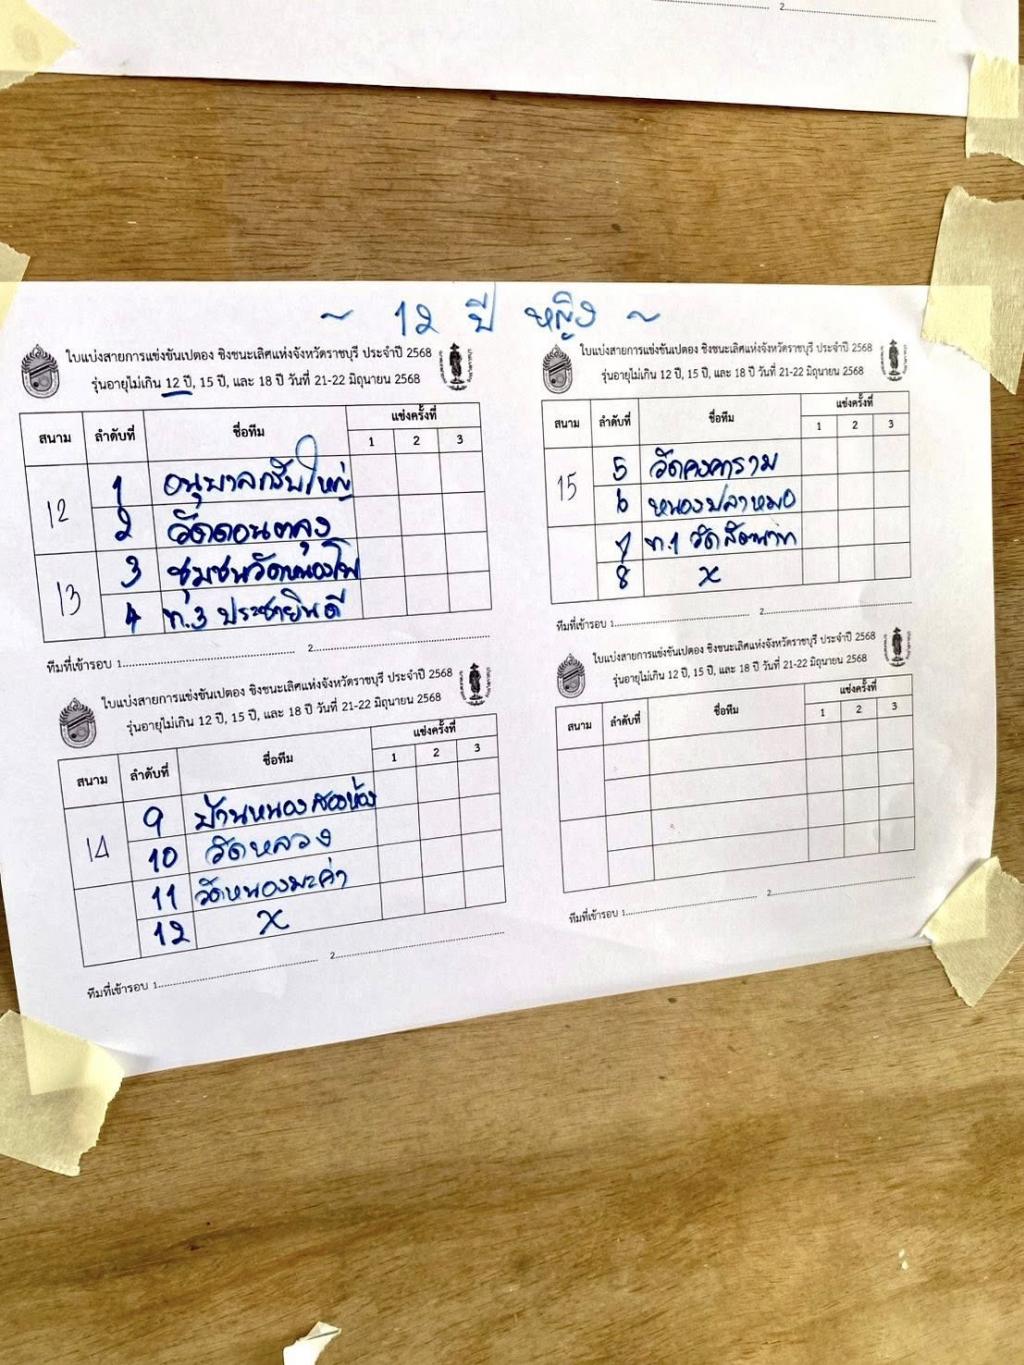 2
~ 12 ปี หญิง ~
ใบแบ่งสายการแข่งขันเปตอง ชิงชนะเลิศแห่งจังหวัดราชบุรี ประจำปี 2568
รุ่นอายุไม่เกิน 12 ปี, 15 ปี, และ 18 ปี วันที่ 21-22 มิถุนายน 2568
สนาม ลำดับที่ ชื่อทีม แข่งครั้งที่
1 2 3
12 1 อนุบาลกรับใหญ่
2 วัดดอนตลุง
13 3 ชุมชนวัดหนองโพ
4 ท.3 ประชายินดี
ทีมที่เข้ารอบ 1 2
ใบแบ่งสายการแข่งขันเปตอง ชิงชนะเลิศแห่งจังหวัดราชบุรี ประจำปี 2568
รุ่นอายุไม่เกิน 12 ปี, 15 ปี, และ 18 ปี วันที่ 21-22 มิถุนายน 2568
สนาม ลำดับที่ ชื่อทีม แข่งครั้งที่
1 2 3
15 5 วัดคงคาราม
6 หนองปลาหมอ
7 ท.1 วัด
8 x
ทีมที่เข้ารอบ 1 2
ใบแบ่งสายการแข่งขันเปตอง ชิงชนะเลิศแห่งจังหวัดราชบุรี ประจำปี 2568
รุ่นอายุไม่เกิน 12 ปี, 15 ปี, และ 18 ปี วันที่ 21-22 มิถุนายน 2568
สนาม ลำดับที่ ชื่อทีม แข่งครั้งที่
1 2 3
14 9 บ้านหนองสองห้อง
10 วัดหลวง
11 วัดหนองมะค่า
12 x
ทีมที่เข้ารอบ 1 2
ใบแบ่งสายการแข่งขันเปตอง ชิงชนะเลิศแห่งจังหวัดราชบุรี ประจำปี 2568
รุ่นอายุไม่เกิน 12 ปี, 15 ปี, และ 18 ปี วันที่ 21-22 มิถุนายน 2568
สนาม ลำดับที่ ชื่อทีม แข่งครั้งที่
1 2 3
ทีมที่เข้ารอบ 1 2